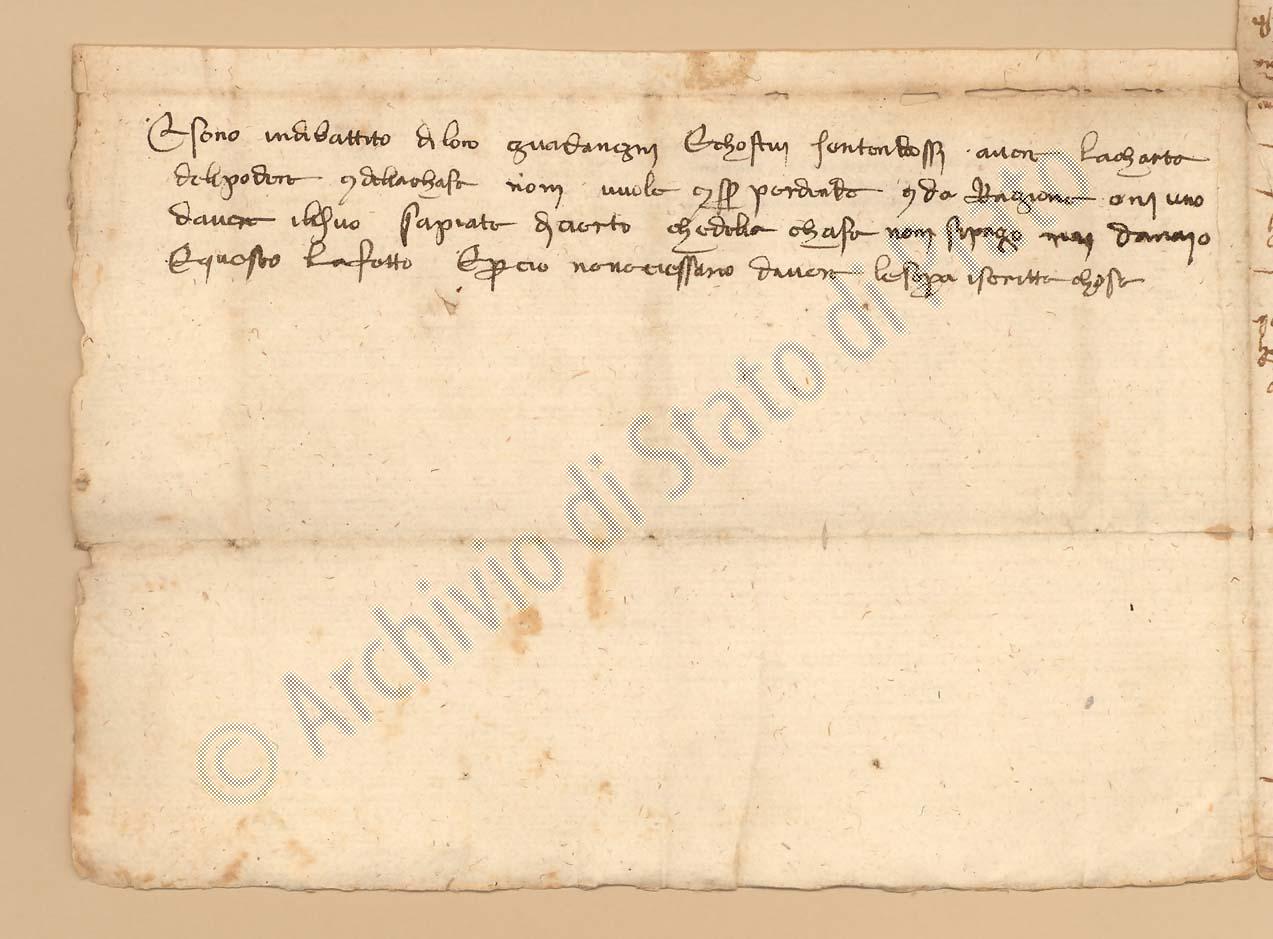 E sono in dibattito di loro ghuadangni E chostui sentendossi avere la charta
del podere e della chasa nonn vuole e si perdendo e da Ragione oni uno
d avere il suo sapiate di cierto che della chasa nonn si pago mai danaio
E questo l a fatto E per cio neciessario d avere le sopra iscritte chose
© Archivio di Stato di Prato